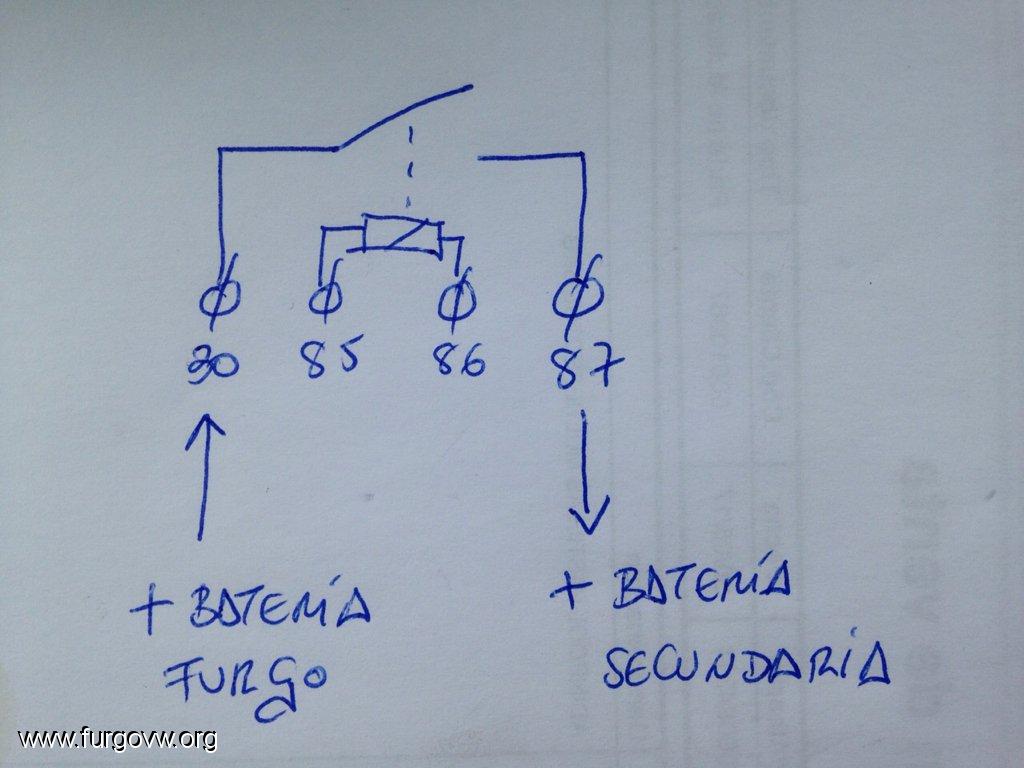 30 85 86 87
+ BATERÍA
FURGO
+ BATERÍA
SECUNDARIA
www.furgovw.org